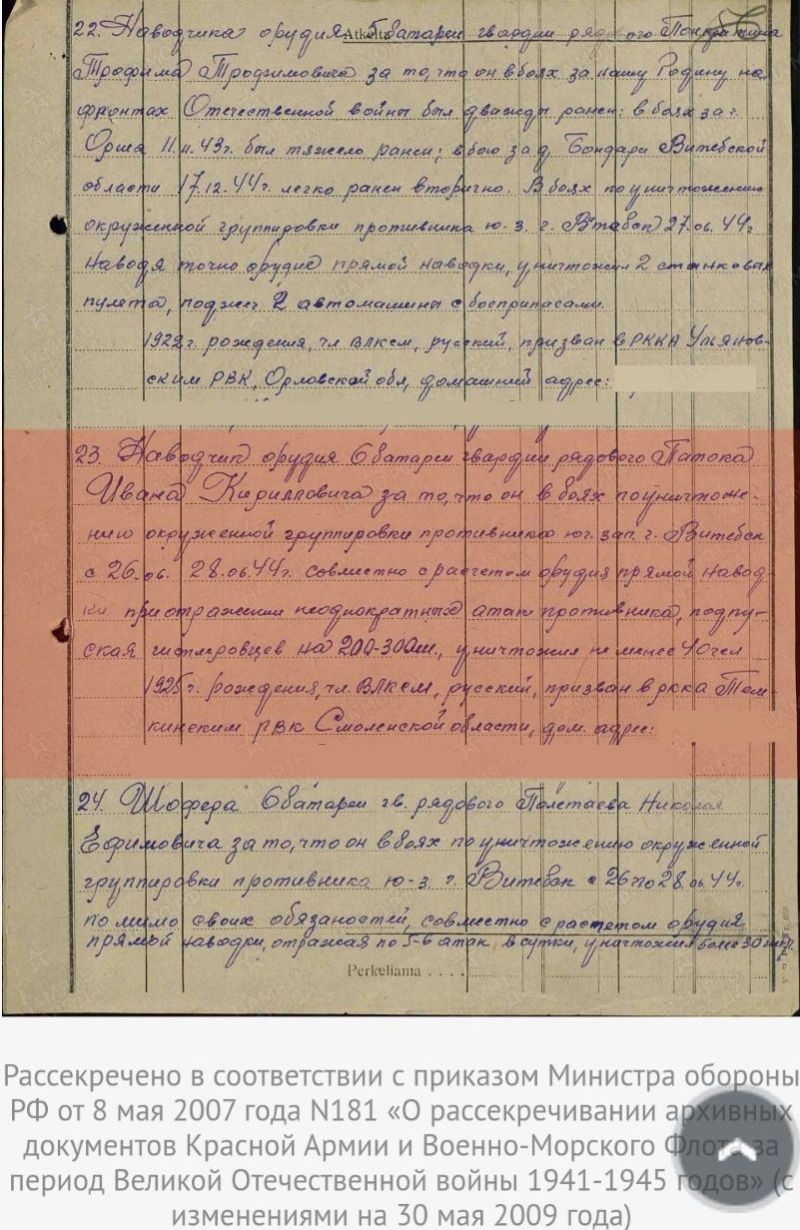 Atkelta
22. Наводчика орудия 5 батареи гвардии рядового
Трофима Трофимовича за то, что он в боях за нашу Родину на
фронтах Отечественной войны был дважды ранен: в боях за г.
Орша 11.11.43г. был тяжело ранен; в бою за д. Бондари Витебской
области 17.12.44г. легко ранен вторично. В боях по уничтожению
окруженной группировки противника ю-з. г. Втебск 27.06.44г
наводя точно орудие прямой наводки, уничтожил 2 станковых
пулмета, поджег 2 автомашины с боеприпасами.
1922г. рождения, чл ВЛКСМ, русский, призван в РККА Ульянов-
ским РВК, Орловской обл, домашний адрес:
23. Наводчик орудия 6 батареи гвардии рядового Патока
Ивана Кирилловича за то, что он в боях по уничтоже-
нию окруженной группировки противника юг. зап. г. Витебск
с 26.06. 28.06.44г. совместно с расчетом орудия прямой навод-
ки при отражении неоднократных атак противника, подпу-
ская гитлеровцев на 200-300м., уничтожил не менее 40 чел
1925г. рождения, чл. ВЛКСМ, русский, призван в ркка Тем-
кинским РВК Смоленской области, дом. адрес:
24. Шофера 6 батареи гв. рядового Полетаева Николая
Ефимовича за то, что он в боях по уничтожению окруженной
группировки противника ю-з. г. Витебск с 26 по 28.06.44г.
по мимо своих обязаностей, совместно с расчетом орудия
прямой наводки, отражая по 5-6 атак в сутки, уничтожил более 30
Perkeliama . . . .
Рассекречено в соответствии с приказом Министра обороны
РФ от 8 мая 2007 года N181 «О рассекречивании архивных
документов Красной Армии и Военно-Морского Флота за
период Великой Отечественной войны 1941-1945 годов» (с
изменениями на 30 мая 2009 года)